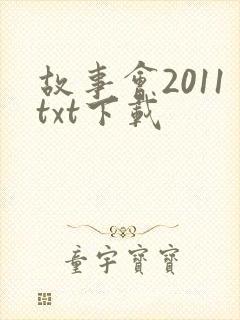 故事會2011
txt下載
童宇寶寶